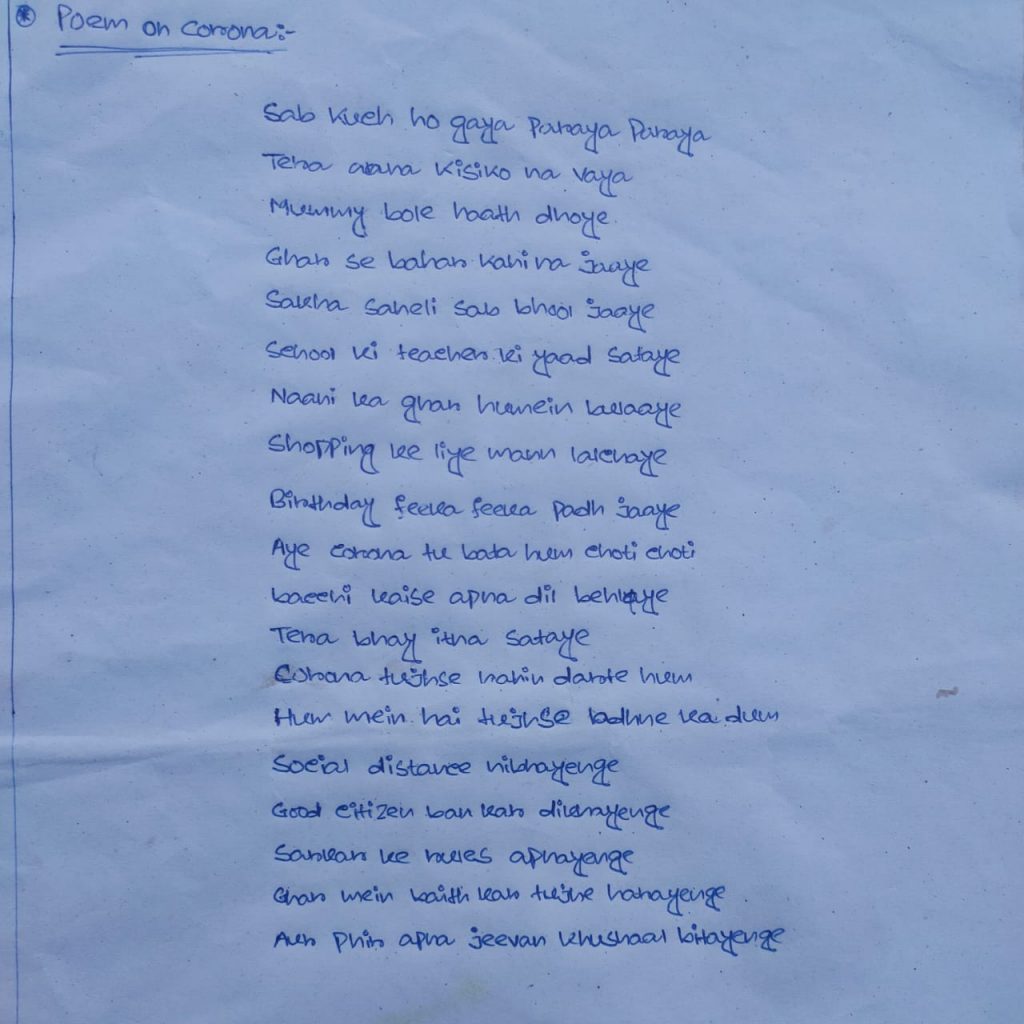 Poem on corona:-
Sab kuch ho gaya Paraya Paraya
Tera aana kisiko na vaya
Mummy bole haath dhoye
Ghar se bahar kahi na jaaye
Sakha saheli sab bhool jaaye
School ki teacher ki yaad sataye
Naani ka ghar humein bulaaye
Shopping ke liye mann lalchaye
Birthday feeka feeka padh jaaye
Aye corona tu bata hum choti choti
bacchi kaise apna dil behlaye
Tera bhay itna sataye
Corona tujhse nahin darte hum
Hum mein hai tujhse ladhne ka dum
Social distance nibhayenge
Good citizen ban kar dikhayenge
Sarkar ke rules apnayenge
Ghar mein baith kar tujhe harayenge
Aur phir apna jeevan khushaal bitayenge